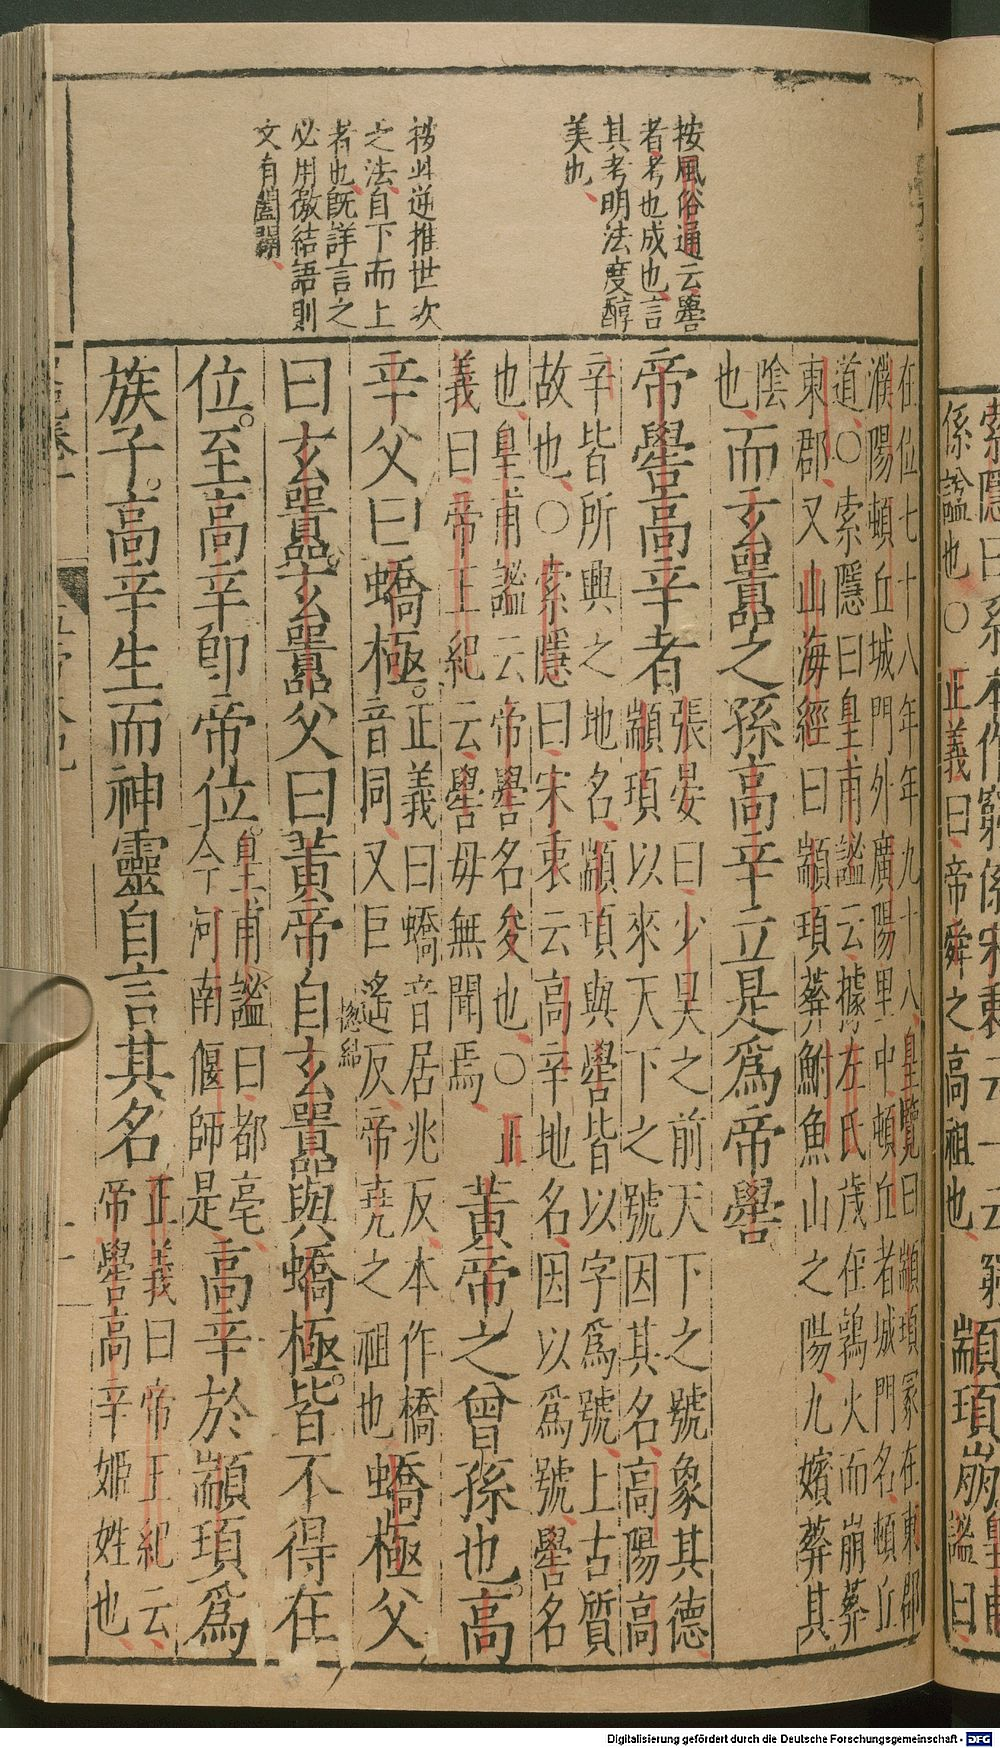 係謚也○正義曰帝舜之高祖也
顓頊崩
在位七十八年年九十八皇覽曰顓頊冢在東郡
濮陽頓丘城門外廣陽里中頓丘者城門名頓丘
道○索隱曰皇甫謐云據左氏歲在鶉火而崩葬
東郡又山海經曰顓頊葬鮒魚山之陽九嬪葬其
陰
也而玄囂之孫高辛立是為帝嚳
帝嚳高辛者
張晏曰少昊之前天下之號象其德
顓頊以來天下之號因其名高陽高
辛皆所興之地名顓頊與嚳皆以字為號上古質
故也○索隱曰宋衷云高辛地名因以為號嚳名
也皇甫謐云帝嚳名夋也○正
義曰帝王紀云嚳母無聞焉
黃帝之曾孫也高
辛父曰蟜極
正義曰蟜音居兆反本作橋
音同又巨遙反帝堯之祖也
蟜極父
曰玄囂玄囂父曰黃帝自玄囂與蟜極皆不得在
總結
位至高辛即帝位
皇甫謐曰都亳
今河南偃師是
高辛於顓頊為
族子高辛生而神靈自言其名
正義曰帝王紀云
帝嚳高辛姬姓也
按風俗通云嚳
者考也成也言
其考明法度醇
美也
按此逆推世次
之法自下而上
者也既詳言之
必用儌結語則
文有闔闢
Digitalisierung gefördert durch die Deutsche Forschungsgemeinschaft - DFG